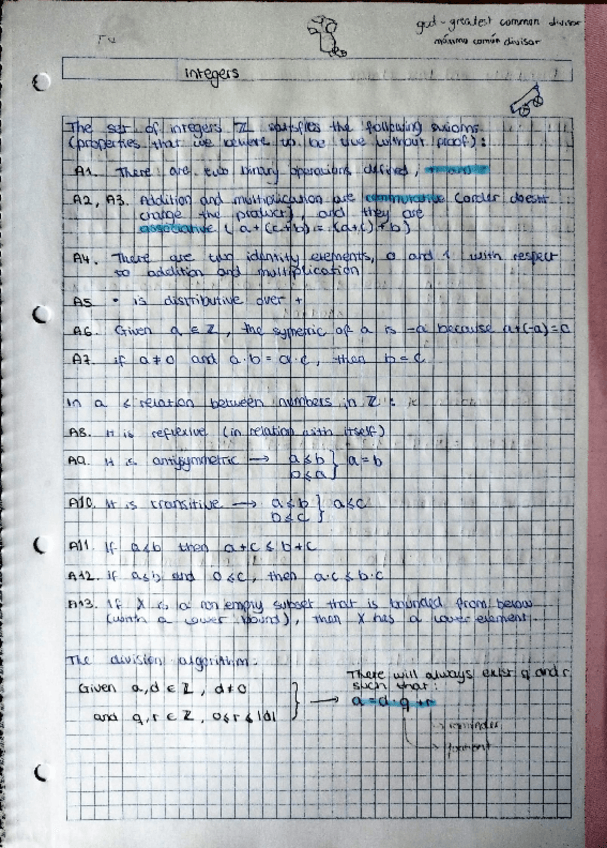 gcd - greatest common divisor
máximo común divisor
Integers
The set of integers ℤ satisfies the following axioms
(properties that we believe to be true without proof):
A1. There are two binary operations defined,
A2, A3. Addition and multiplication are commutative (order doesn't
change the product), and they are
associative (a+(c+b)=(a+c)+b)
A4. There are two identity elements, 0 and 1 with respect
to addition and multiplication
A5 • is distributive over +
A6. Given a ∈ ℤ, the symetric of a is -a because a+(-a)=0
A7. if a≠0 and a·b=a·c, then b=c
In a ≤ relation between numbers in ℤ:
A8. It is reflexive (in relation with itself)
A9. It is antisymmetric → a≤b } a=b
b≤a
A10. It is transitive → a≤b } a≤c
b≤c
A11. If a≤b then a+c ≤ b+c
A12. if a≤b and 0≤c, then a·c ≤ b·c
A13. If X is a non empty subset that is bounded from below
(with a lower bound), then X has a lower element.
The division algorithm:
Given a,d ∈ ℤ, d≠0
and q,r ∈ ℤ, 0≤r≤|d|
There will always exist q and r
such that:
a=d·q+r